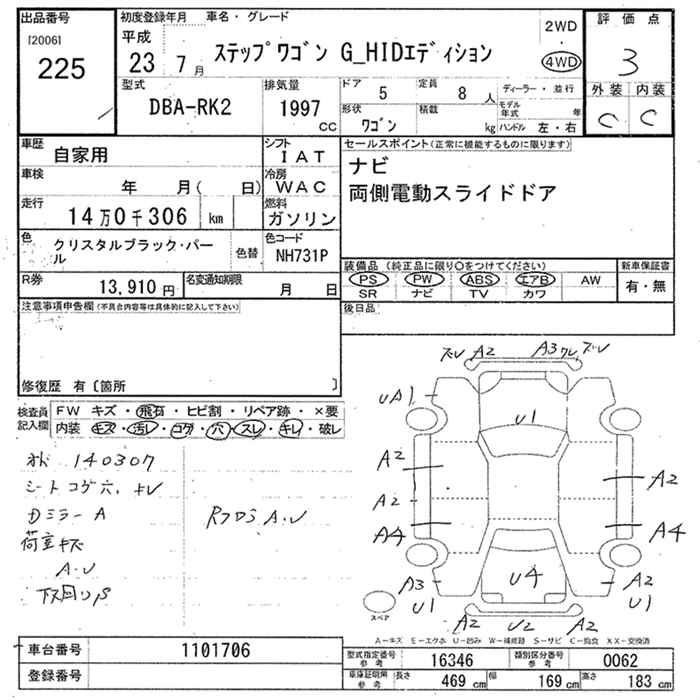 出品番号
[2006]
225
初度登録年月 車名・グレード
平成
23 7月
ステップワゴン G_HIDエディション
2WD
4WD
評価点
3
外装 内装
C C
型式
DBA-RK2
排気量
1997
CC
ドア
5
定員
8人
形状
ワゴン
積載
kg
ディーラー・並行
モデル年式 年
ハンドル 左・右
車歴
自家用
シフト
IAT
車検
年 月( 日)
冷房
WAC
走行
14万0千306 km
燃料
ガソリン
色
クリスタルブラック・パール
色替
色コード
NH731P
R券
13,910円
名変通知期限
月 日
セールスポイント(正常に機能するものに限ります)
ナビ
両側電動スライドドア
装備品 (純正品に限り○をつけてください)
PS PW ABS エアB AW
SR ナビ TV カワ
新車保証書
有・無
後日品
注意事項申告欄(不具合内容等は具体的に記入して下さい)
修復歴 有〔箇所 〕
検査員記入欄
FW キズ・飛石・ヒビ割・リペア跡・×要
内装 キズ・汚レ・コゲ・穴・スレ・キレ・破レ
140307
シートコゲ穴、キレ
Dミラー A
荷室キズ
A.U
A.U
ズレ A2
A3 ワレ、ズレ
UA1
U1
A2
A2
A2
A4
A4
A3
U1
U4
A2
U1
A2
U2
A2
スペア
A-キズ E-エクボ U-凹み W-補修跡 S-サビ C-腐食 XX-交換済
車台番号
1101706
登録番号
型式指定番号 参考
16346
類別区分番号 参考
0062
車庫証明用 参考
長さ
469 cm
幅
169 cm
高さ
183 cm